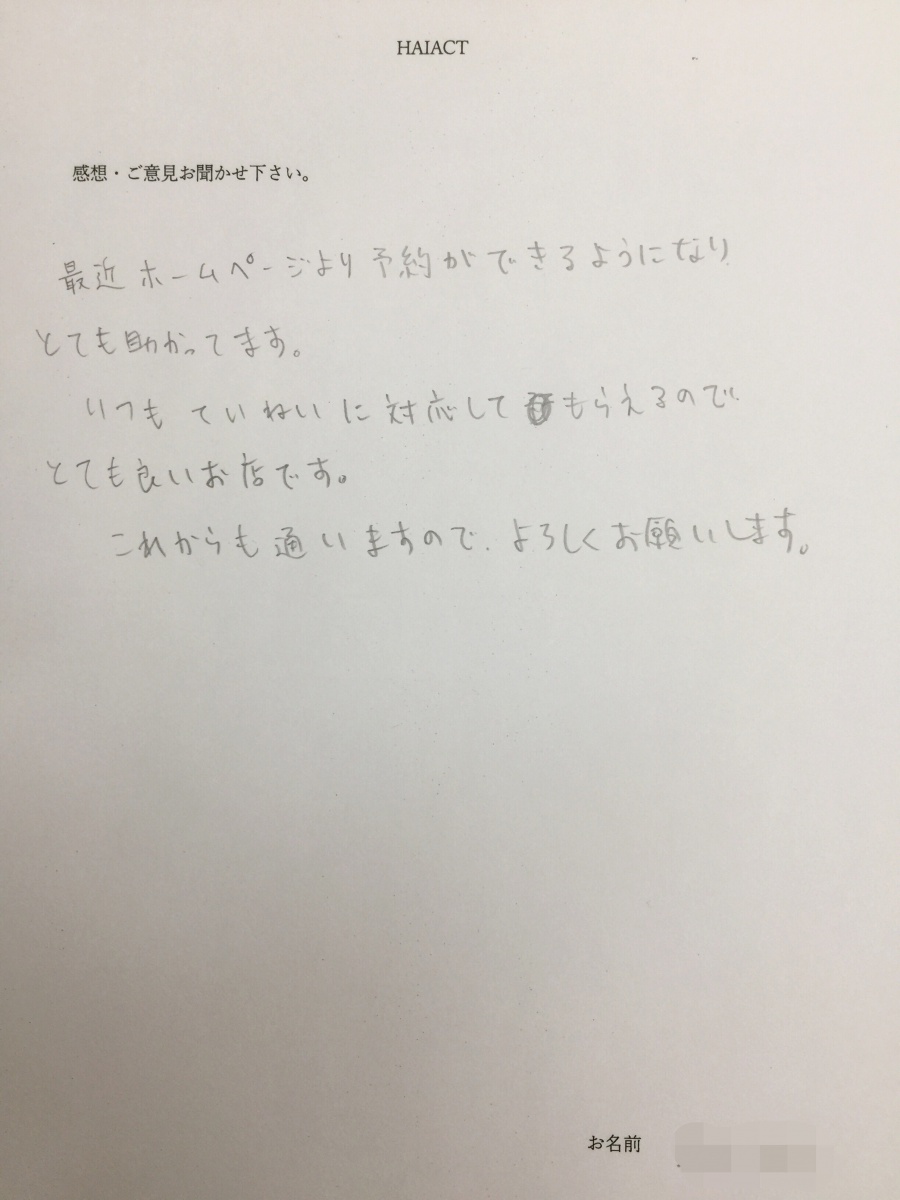 HAIACT
感想・ご意見お聞かせ下さい。
最近ホームページより予約ができるようになり
とても助かってます。
いつもていねいに対応してもらえるので、
とても良いお店です。
これからも通いますので、よろしくお願いします。
お名前